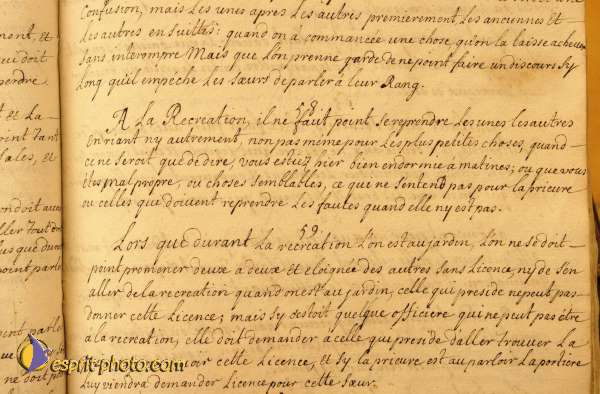 Confusion, mais Les unes apres Les autres premierement Les anciennes Et
Les autres en suittes: quand on a commancée une chose qu'on La laisse achever
sans interompre Mais que L'on prenne garde de ne point faire un discours sy
Long qu'il empeche Les sœurs de parler a Leur Rang.
58
A La Recreation, il ne faut point se reprendre Les unes les autres
En riant ny autrement, non pas meme pour Les plus petites choses, quand
ce ne seroit que de dire, vous estiez hier bien endormie a matines; ou que vous
êtes mal propre, ou choses semblables, ce que ne s'entend pas pour la prieure
ou celles que doivent reprendre Les fautes quand elle ny est pas.
59
Lors que durant La recréation L'on est au jardin, L'on ne se doit
point promener deux a deux Et eloignée des autres sans Licence, ny de s'en
aller de la recreation quand on est au jardin, celle qui preside ne peut pas
donner cette Licence; mais sy c'estoit quelque officiere qui ne peut pas étre
a la recreation, elle doit demander a celle qui preside d'aller trouver La
avoir cette Licence, Et sy La prieure est au parloir La portiere
Luy viendra demander Licence pour cette sœur.
esprit-photo.com